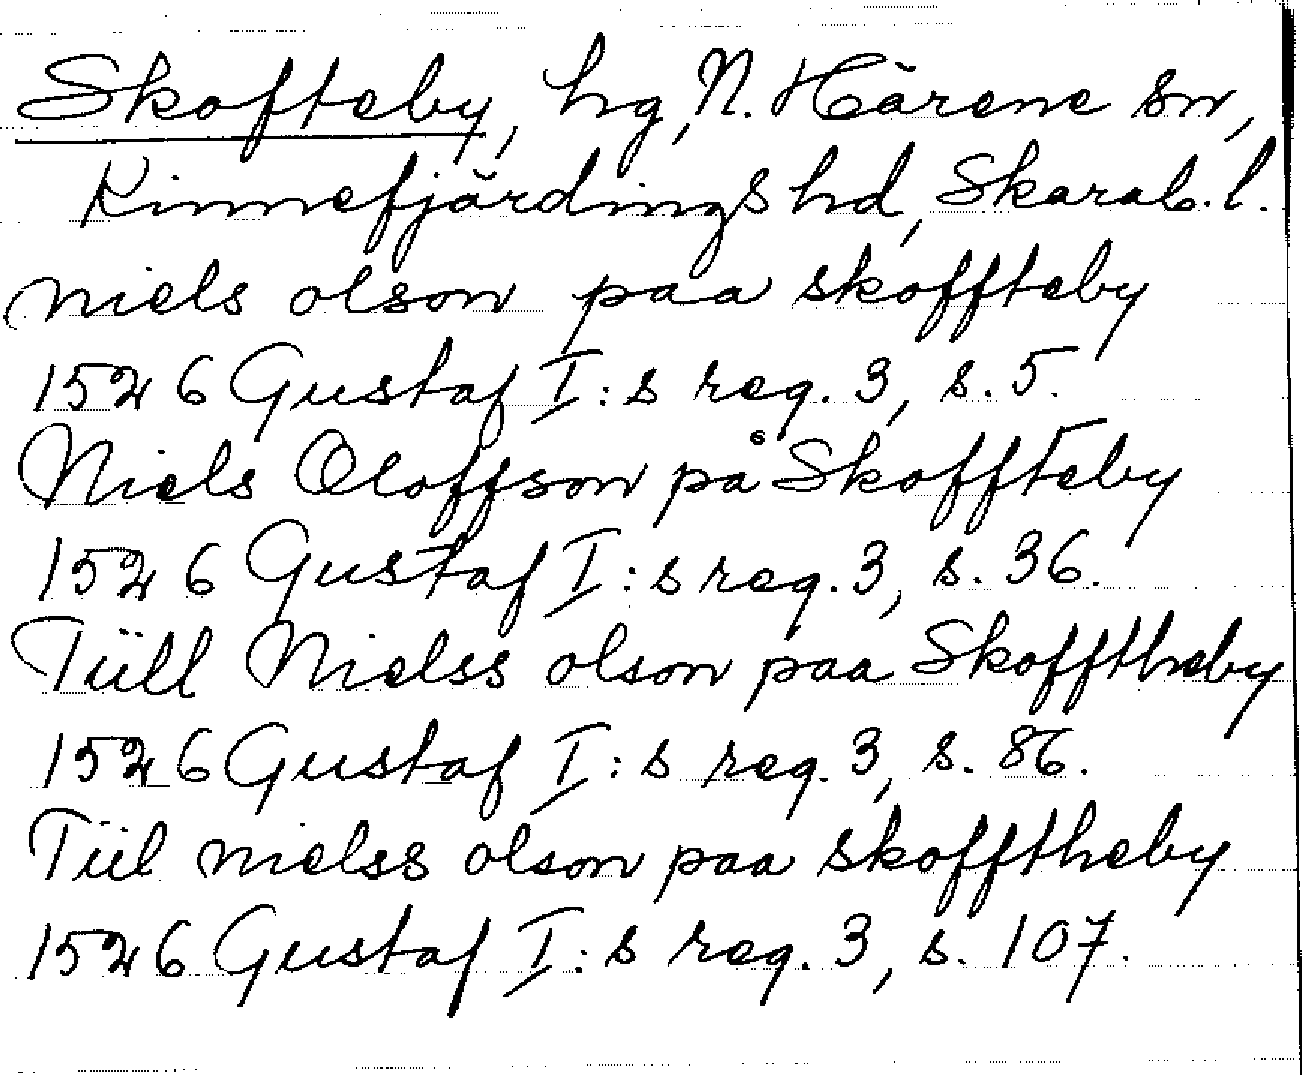 Skofteby, hg, N. Härene sn,
Kinnefjärdings hd, Skarab. l.
niels olson paa skoffteby
1526 Gustaf I:s reg. 3, s. 5.
Niels Oloffson på Skoffteby
1526 Gustaf I:s reg. 3, s. 36.
Tiill Nielss olson paa Skofftheby
1526 Gustaf I:s reg. 3, s. 86.
Tiil nielss olson paa skofftheby
1526 Gustaf I:s reg. 3, s. 107.